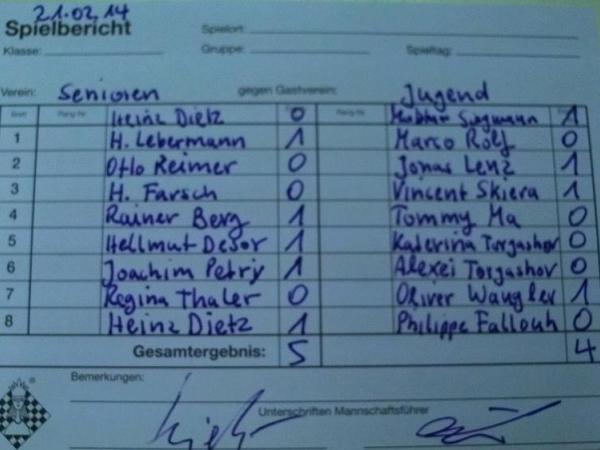 21.02.14
Spielbericht Spielort:
Klasse: Gruppe: Spieltag:
Verein: Senioren gegen Gastverein: Jugend
Brett Rang-Nr. Heinz Dietz 0 Rang-Nr. 1
1 H. Lebermann 1 Marco Rolf 0
2 Otto Reimer 0 Jonas Lenz 1
3 H. Farsch 0 Vincent Skiera 1
4 Rainer Berg 1 Tommy Ma 0
5 Hellmut Desor 1 Katerina Torgashov 0
6 Joachim Petry 1 Alexei Torgashov 0
7 Regina Thaler 0 Oliver Wangler 1
8 Heinz Dietz 1 Philippe Fallouh 0
Gesamtergebnis: 5 4
Bemerkungen:
Unterschriften Mannschaftsführer